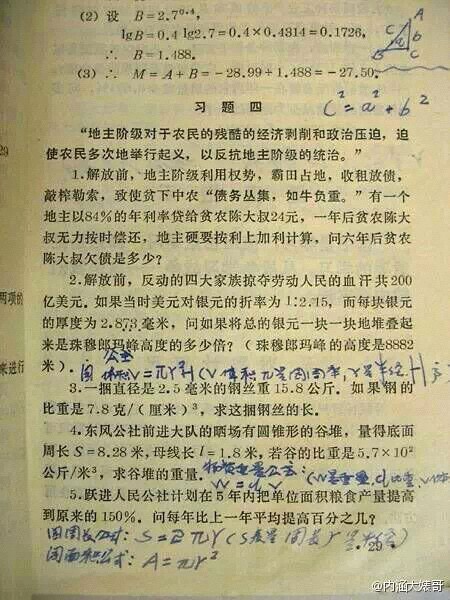 (2) 设 B=2.7⁰·⁴,
lgB=0.4 lg2.7=0.4×0.4314=0.1726,
∴ B=1.488.
(3) ∴ M=A+B=-28.99+1.488=-27.50.
A
C
b
B
a
C
习 题 四
c²=a²+b²
29
“地主阶级对于农民的残酷的经济剥削和政治压迫，迫
使农民多次地举行起义，以反抗地主阶级的统治。”
1.解放前，地主阶级利用权势，霸田占地，收租放债，
敲榨勒索，致使贫下中农“债务丛集，如牛负重。”有一个
地主以84%的年利率贷给贫农陈大叔24元，一年后贫农陈大
叔无力按时偿还，地主硬要按利上加利计算，问六年后贫农
陈大叔欠债是多少？
2.解放前，反动的四大家族掠夺劳动人民的血汗共200
亿美元。如果当时美元对银元的折率为1:2.15，而每块银元
两项的
的厚度为2.873毫米，问如果将总的银元一块一块地堆叠起
来是珠穆郎玛峰高度的多少倍？（珠穆郎玛峰的高度是8882
米）.
来进行
公式
V=πr²H (V
3.一捆直径是2.5毫米的钢丝重15.8公斤。如果钢的
比重是7.8克/（厘米）³，求这捆钢丝的长.
4.东风公社前进大队的晒场有圆锥形的谷堆，量得底面
周长S=8.28米,母线长l=1.8米，若谷的比重是5.7×10²
公斤/米³，求谷堆的重量.
W=dV
5.跃进人民公社计划在5年内把单位面积粮食产量提高
到原来的150%．问每年比上一年平均提高百分之几？
圆周长公式: S=2πr (S是圆周长 r是半径)
·29·
圆面积公式: A=πr²
@内涵大婊哥